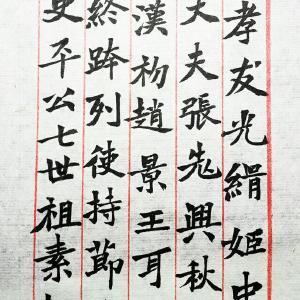 孝友光緝姬中
大夫張兎興秋
漢初趙景王耳
終跡列使持節
吏平公七世祖素